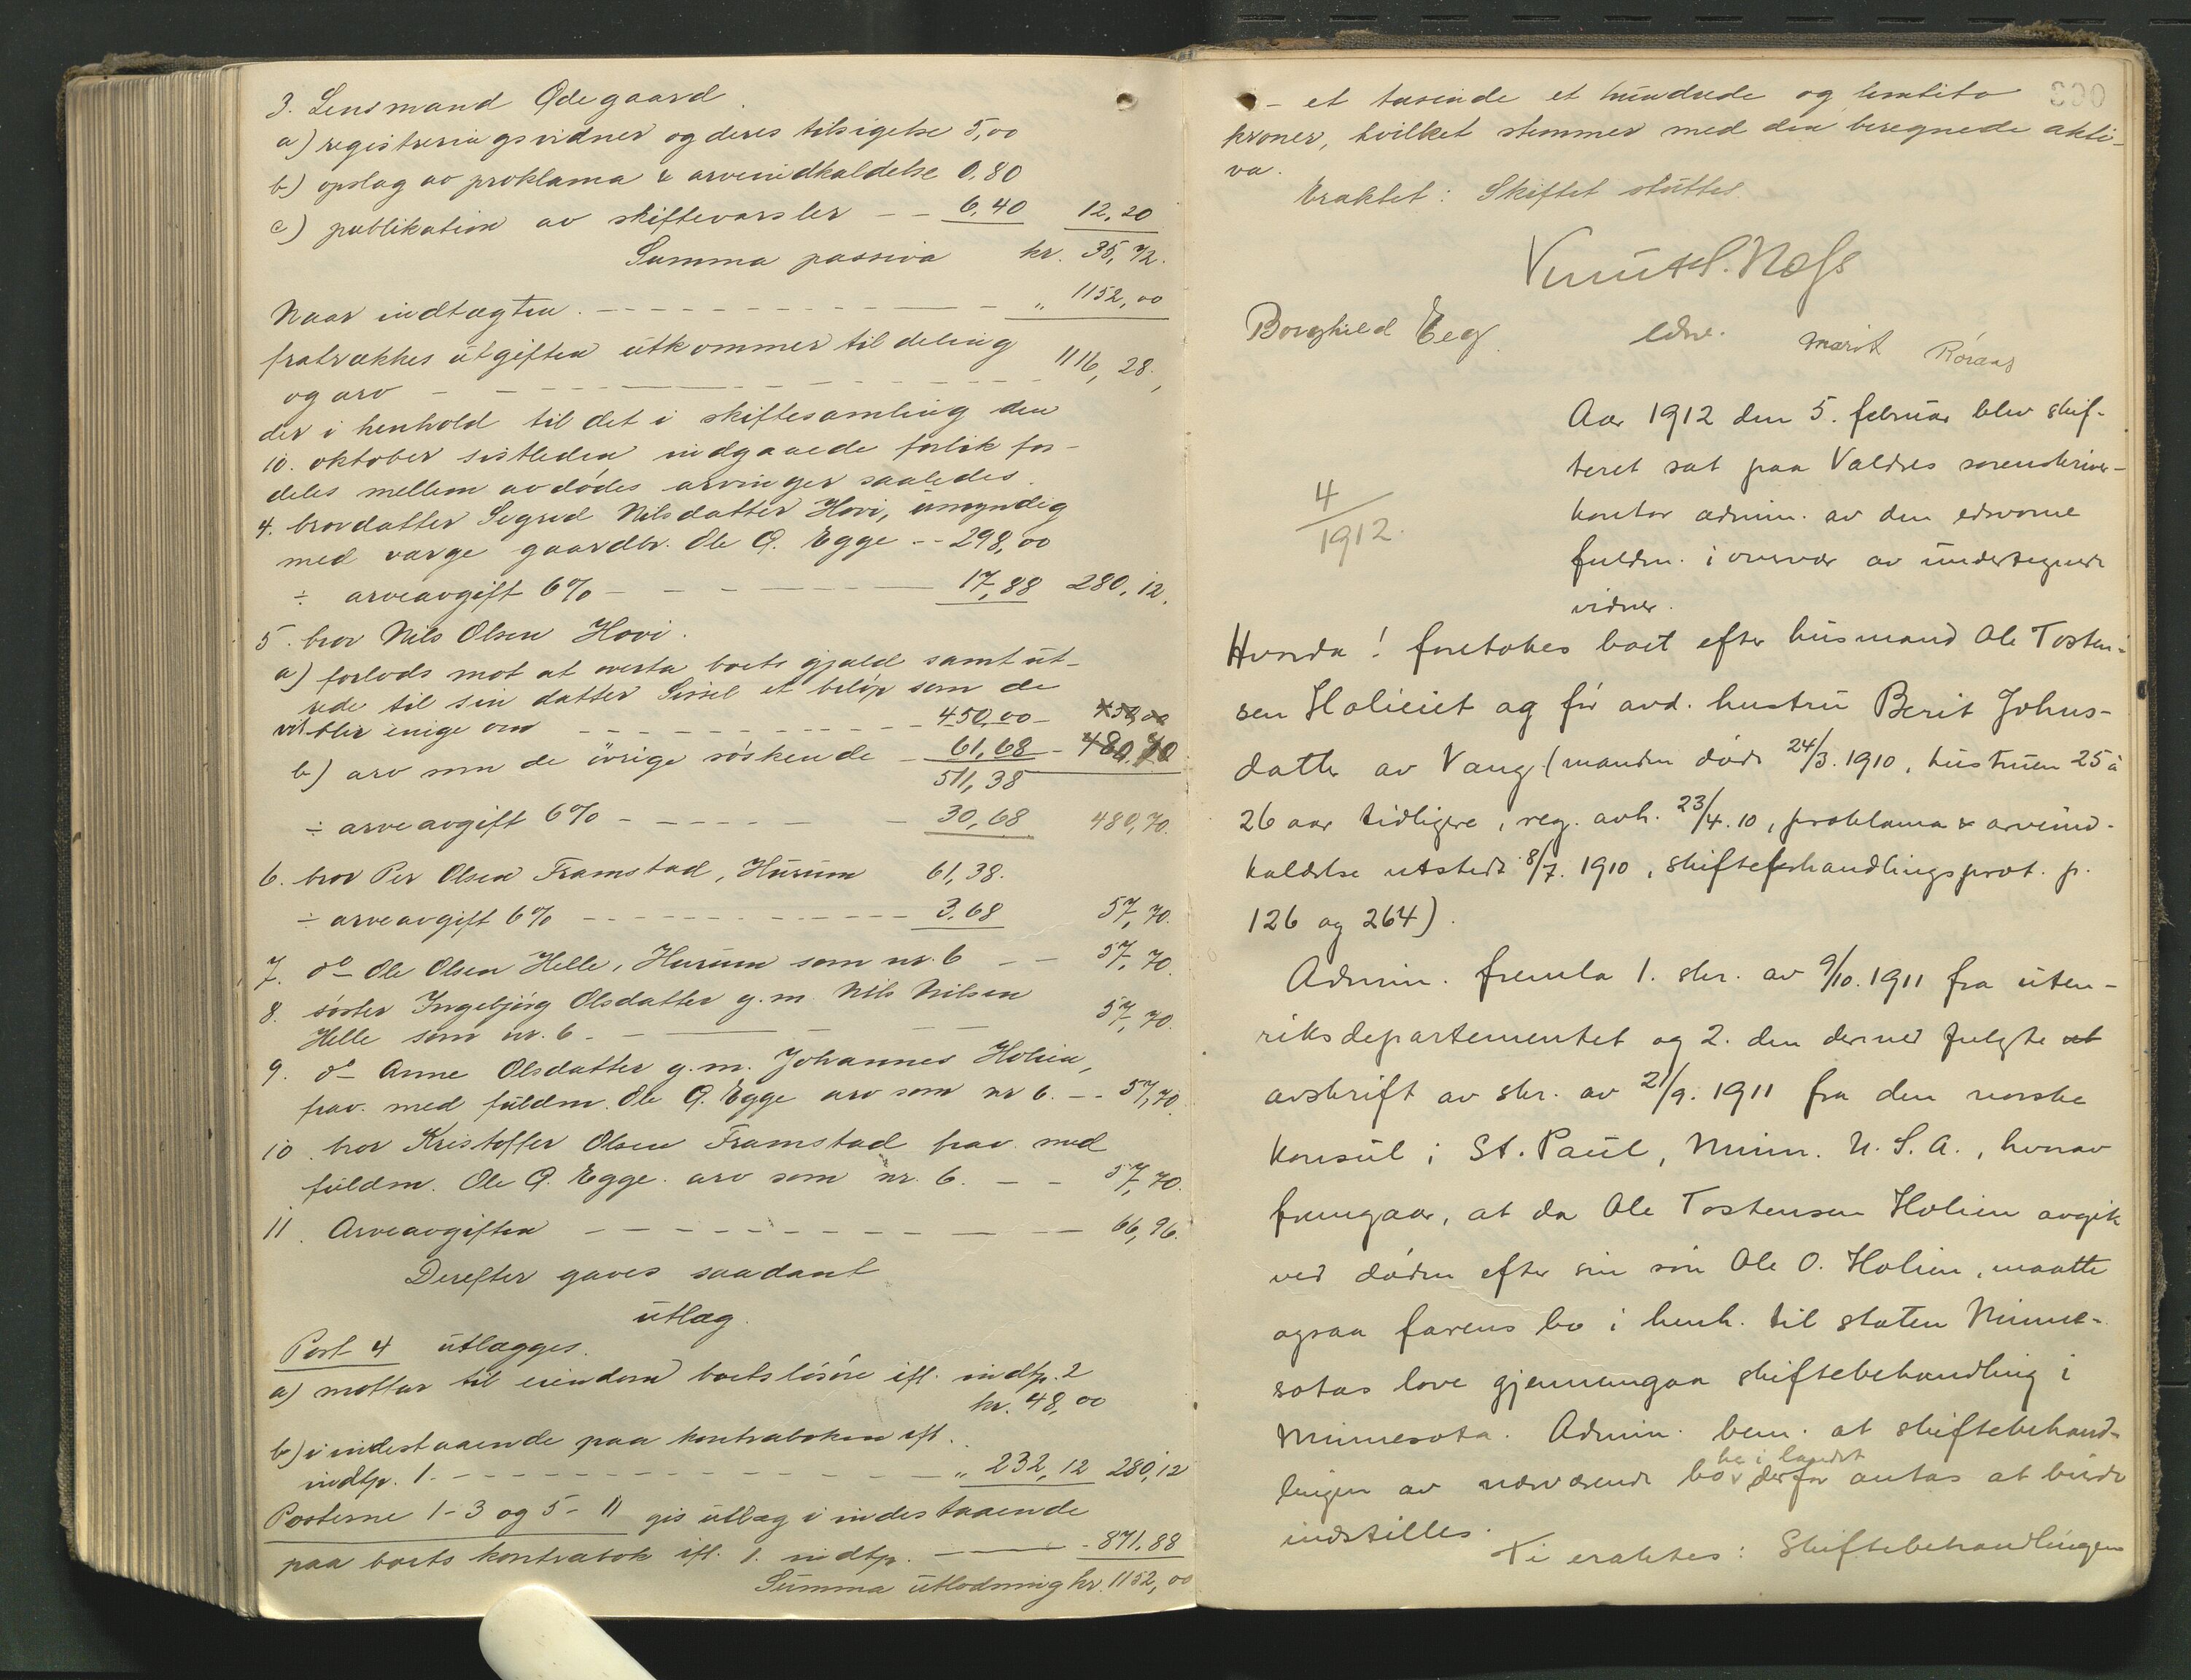 3. Lensmand Ødegaard.
a) registreringsvidner og deres tilsigelse 5,00
b) opslag av proklama & arveindkaldelse 0,80
c) publikation av skiftevarsler – – 6,40 12,20
Summa passiva kr. 35,72.
Naar indtægten. – – – – – – – – " 1152,00
fratrækkes utgiften utkommer til deling
og arv – – – – – – – – 1116,28.,
der i henhold til det i skiftesamling den
10. oktober sistleden indgaaede forlik for-
deles mellem avdødes arvinger saaledes.
4. brordatter Sigrid Nilsdatter Hovi, umyndig
med værge gaardbr. Ole O. Egge -- 298,00
÷ arveavgift 6% – – – – – 17,88 280,12.
5. bror Nils Olsen Hovi.
a) forlods mot at overta boets gjæld samt ut-
rede til sin datter Sissel et beløp som de
vil blir enige om – – – – – 450,00 – 450,00
b) arv som de övrige søskende – 61,68 – 480,70
511,38
÷ arveavgift 6% – – – – – 30,68 480,70.
6. bror Per Olsen Framstad, Hurum 61,38.
÷ arveavgift 6% – – – – – – 3,68 57,70.
7. do Ole Olsen Helle, Hurum som nr. 6 – – 57,70.
8. søster Ingebjørg Olsdatter g.m. Nils Nilsen
Helle som nr. 6. – – – – – 57,70.
9. do Anne Olsdatter g.m. Johannes Holien,
frav. med fuldm. Ole O. Egge arv som nr 6. -- 57,70
10. bror Kristoffer Olsen Framstad frav. med
fuldm. Ole O. Egge. arv som nr. 6. – – 57,70.
11. Arveavgiften – – – – – – – – 66,96.
Derefter gaves saadant
utlæg.
Post 4 utlægges.
a) mottar til eiendom boets løsøre ifl. indtp. 2
kr. 48,00
b) i indestaaende paa kontraboken ifl.
indtp. 1. – – – – – – – – " 232,12 280,12
Posterne 1-3 og 5-11 gis utlæg i indestaaende
paa boets kontrabok ifl. 1. indtp. – – - 871,88
Summa utlodning kr. 1152,00
- et tusinde et hundrede og femtito
kroner, hvilket stemmer med den beregnede akti-
va.
Eraktet: Skiftet sluttes.
Knut S. Næss
Borghild Eeg. edsv. Marit Rörang
4/1912.
Aar 1912 den 5. februar blev skif-
teret sat paa Valdres sorenskriver-
kontor admin. av den edsvorne
fuldm. i overvær av undertegnede
vidner.
Hvorda! foretokes boet efter husmand Ole Tosten-
sen Holieiet og før avd. hustru Berit Johns-
datter av Vang (manden døde 24/3. 1910, hustruen 25 à
26 aar tidligere, reg. avh. 23/4.10, proklama & arveind-
kaldelse utstedt 8/7. 1910, skifteforhandlingsprot. p.
126 og 264).
Admin. fremla 1. skr. av 9/10. 1911 fra uten-
riksdepartementet og 2. den dermed fulgte ut
avskrift av skr. av 21/9. 1911 fra den norske
konsul i St. Paul, Minn. U.S.A., hvorav
fremgaar, at da Ole Tostensen Holien avgik
ved døden efter sin søn Ole O. Holien, maatte
ogsaa farens bo i henh. til staten Minne-
sotas love gjennemgaa skiftebehandling i
Minnesota. Admin. bem. at skiftebehand-
her i landet
lingen av nærværende bo derfor antas at burde
indstilles.
Ti eraktes: Skiftebehandlingen